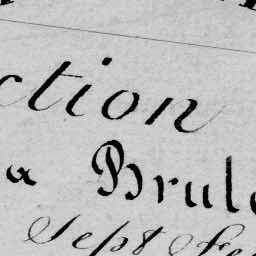 ction
a Brule
Sept Fe